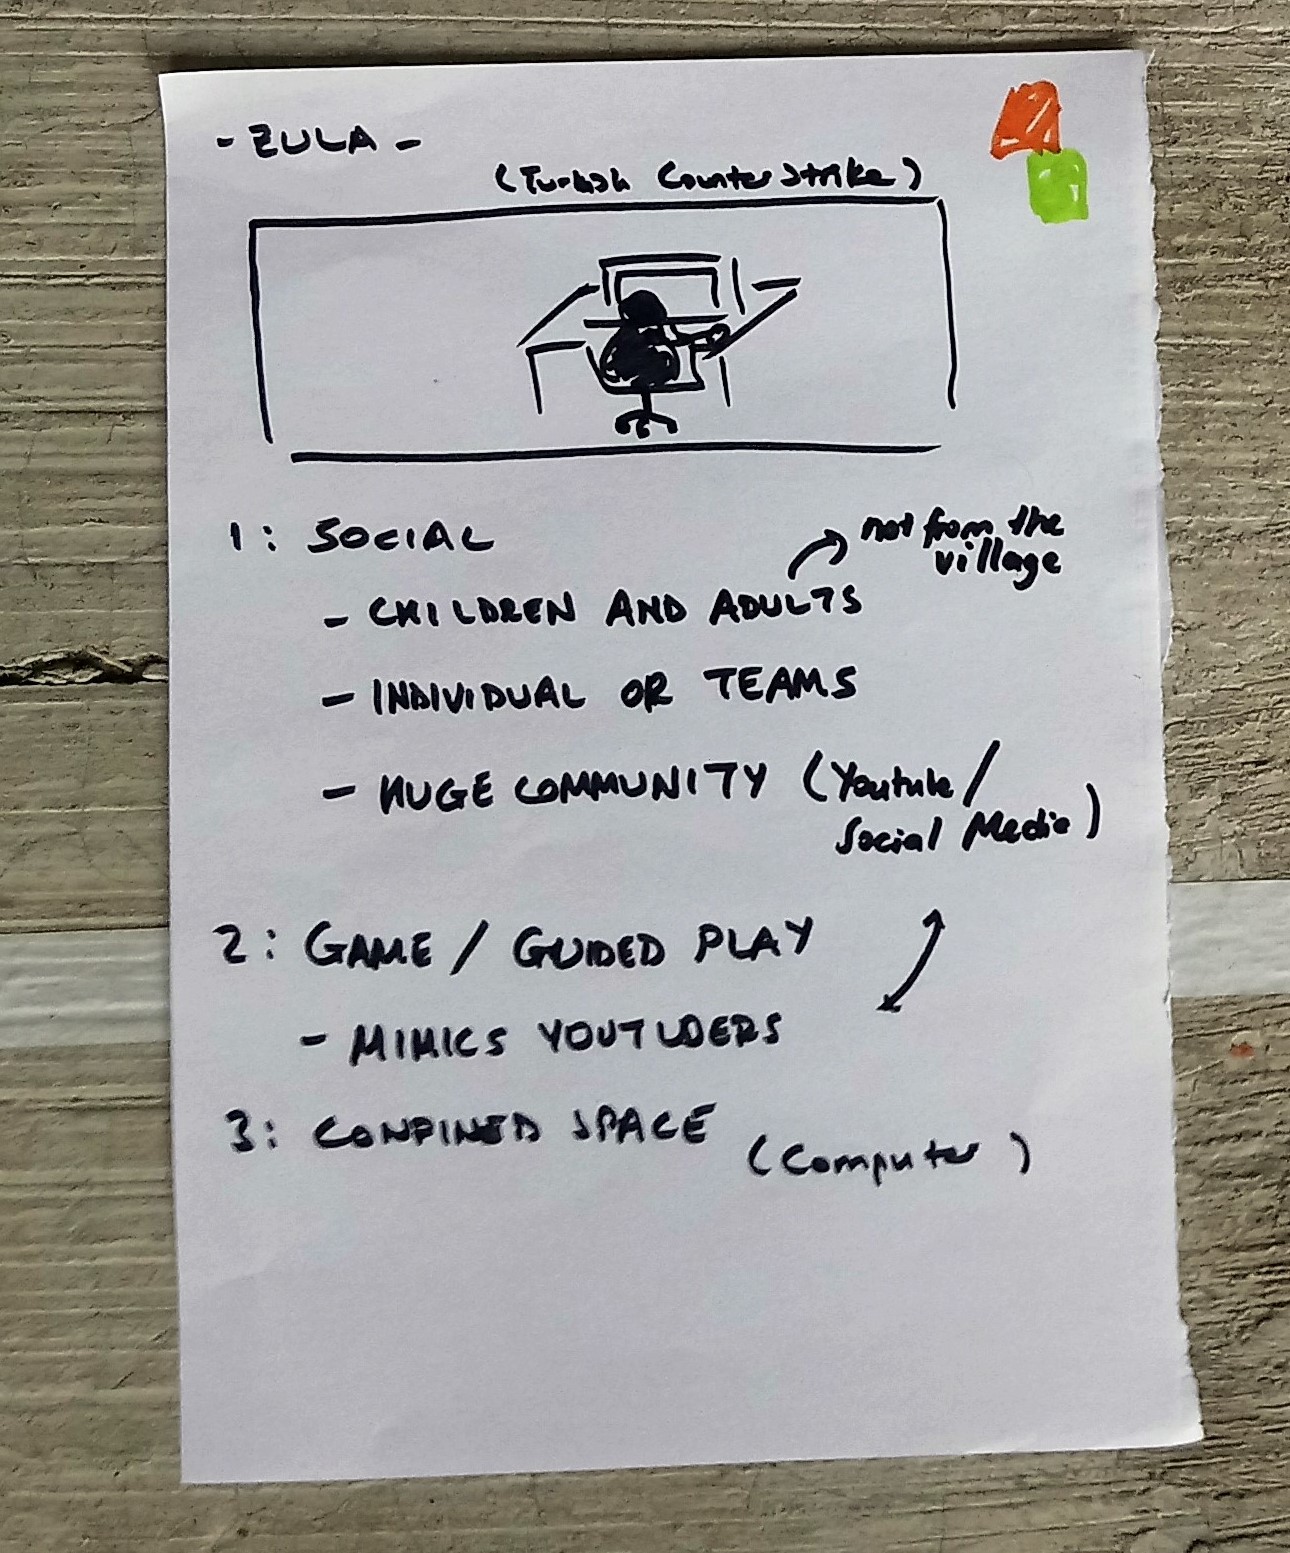 - ZULA -
(Turkish Counter Strike)
1: SOCIAL
not from the
village
- CHILDREN AND ADULTS
- INDIVIDUAL OR TEAMS
- HUGE COMMUNITY (Youtube/
Social Media)
2: GAME / GUIDED PLAY
- MIMICS YOUTUBERS
3: CONFINED SPACE
(Computer)